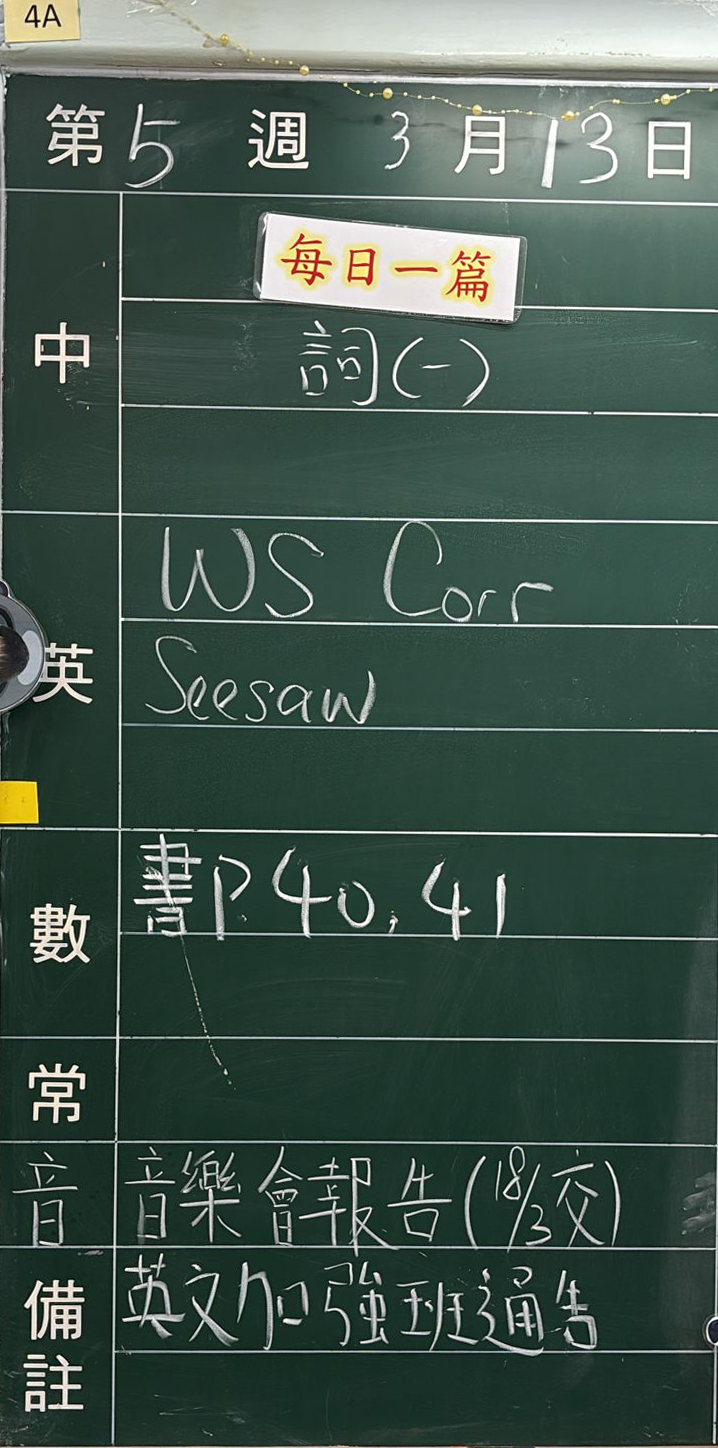 4A
第5週 3月13日
中
每日一篇
詞(一)
英
WS Corr
Seesaw
數
書P.40,41
常
音 音樂會報告(18/3交)
備註
英文加強班通告